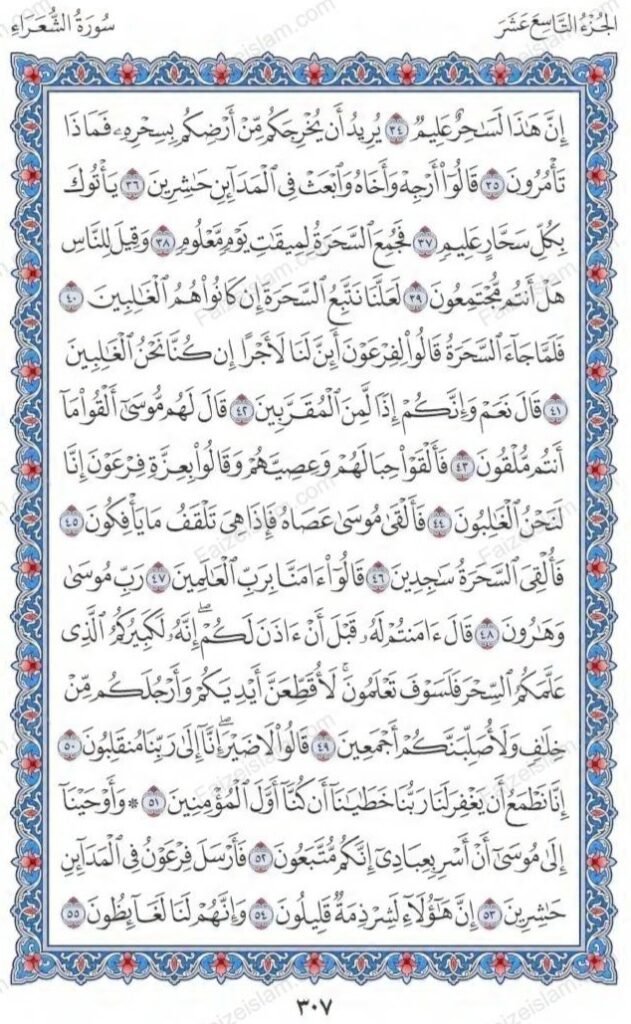 الجُزْءُ التَّاسِعَ عَشَرَ
سُورَةُ الشُّعَرَاءِ
إِنَّ هَٰذَا لَسَٰحِرٌ عَلِيمٌ ٣٤ يُرِيدُ أَن يُخْرِجَكُم مِّنْ أَرْضِكُم بِسِحْرِهِۦ فَمَاذَا
تَأْمُرُونَ ٣٥ قَالُوٓا۟ أَرْجِهْ وَأَخَاهُ وَٱبْعَثْ فِى ٱلْمَدَآئِنِ حَٰشِرِينَ ٣٦ يَأْتُوكَ
بِكُلِّ سَحَّارٍ عَلِيمٍ ٣٧ فَجُمِعَ ٱلسَّحَرَةُ لِمِيقَٰتِ يَوْمٍ مَّعْلُومٍ ٣٨ وَقِيلَ لِلنَّاسِ
هَلْ أَنتُم مُّجْتَمِعُونَ ٣٩ لَعَلَّنَا نَتَّبِعُ ٱلسَّحَرَةَ إِن كَانُوا۟ هُمُ ٱلْغَٰلِبِينَ ٤٠
فَلَمَّا جَآءَ ٱلسَّحَرَةُ قَالُوا۟ لِفِرْعَوْنَ أَئِنَّ لَنَا لَأَجْرًا إِن كُنَّا نَحْنُ ٱلْغَٰلِبِينَ
٤١ قَالَ نَعَمْ وَإِنَّكُمْ إِذًا لَّمِنَ ٱلْمُقَرَّبِينَ ٤٢ قَالَ لَهُم مُّوسَىٰٓ أَلْقُوا۟ مَآ
أَنتُم مُّلْقُونَ ٤٣ فَأَلْقَوْا۟ حِبَالَهُمْ وَعِصِيَّهُمْ وَقَالُوا۟ بِعِزَّةِ فِرْعَوْنَ إِنَّا
لَنَحْنُ ٱلْغَٰلِبُونَ ٤٤ فَأَلْقَىٰ مُوسَىٰ عَصَاهُ فَإِذَا هِىَ تَلْقَفُ مَا يَأْفِكُونَ ٤٥
فَأُلْقِىَ ٱلسَّحَرَةُ سَٰجِدِينَ ٤٦ قَالُوٓا۟ ءَامَنَّا بِرَبِّ ٱلْعَٰلَمِينَ ٤٧ رَبِّ مُوسَىٰ
وَهَٰرُونَ ٤٨ قَالَ ءَامَنتُمْ لَهُۥ قَبْلَ أَنْ ءَاذَنَ لَكُمْ ۖ إِنَّهُۥ لَكَبِيرُكُمُ ٱلَّذِى
عَلَّمَكُمُ ٱلسِّحْرَ فَلَسَوْفَ تَعْلَمُونَ ۚ لَأُقَطِّعَنَّ أَيْدِيَكُمْ وَأَرْجُلَكُم مِّنْ
خِلَٰفٍ وَلَأُصَلِّبَنَّكُمْ أَجْمَعِينَ ٤٩ قَالُوا۟ لَا ضَيْرَ ۖ إِنَّآ إِلَىٰ رَبِّنَا مُنقَلِبُونَ ٥٠
إِنَّا نَطْمَعُ أَن يَغْفِرَ لَنَا رَبُّنَا خَطَٰيَٰنَآ أَن كُنَّآ أَوَّلَ ٱلْمُؤْمِنِينَ ٥١ * وَأَوْحَيْنَآ
إِلَىٰ مُوسَىٰٓ أَنْ أَسْرِ بِعِبَادِىٓ إِنَّكُم مُّتَّبَعُونَ ٥٢ فَأَرْسَلَ فِرْعَوْنُ فِى ٱلْمَدَآئِنِ
حَٰشِرِينَ ٥٣ إِنَّ هَٰٓؤُلَآءِ لَشِرْذِمَةٌ قَلِيلُونَ ٥٤ وَإِنَّهُمْ لَنَا لَغَآئِظُونَ ٥٥
٣٠٧
Faizeislam.com